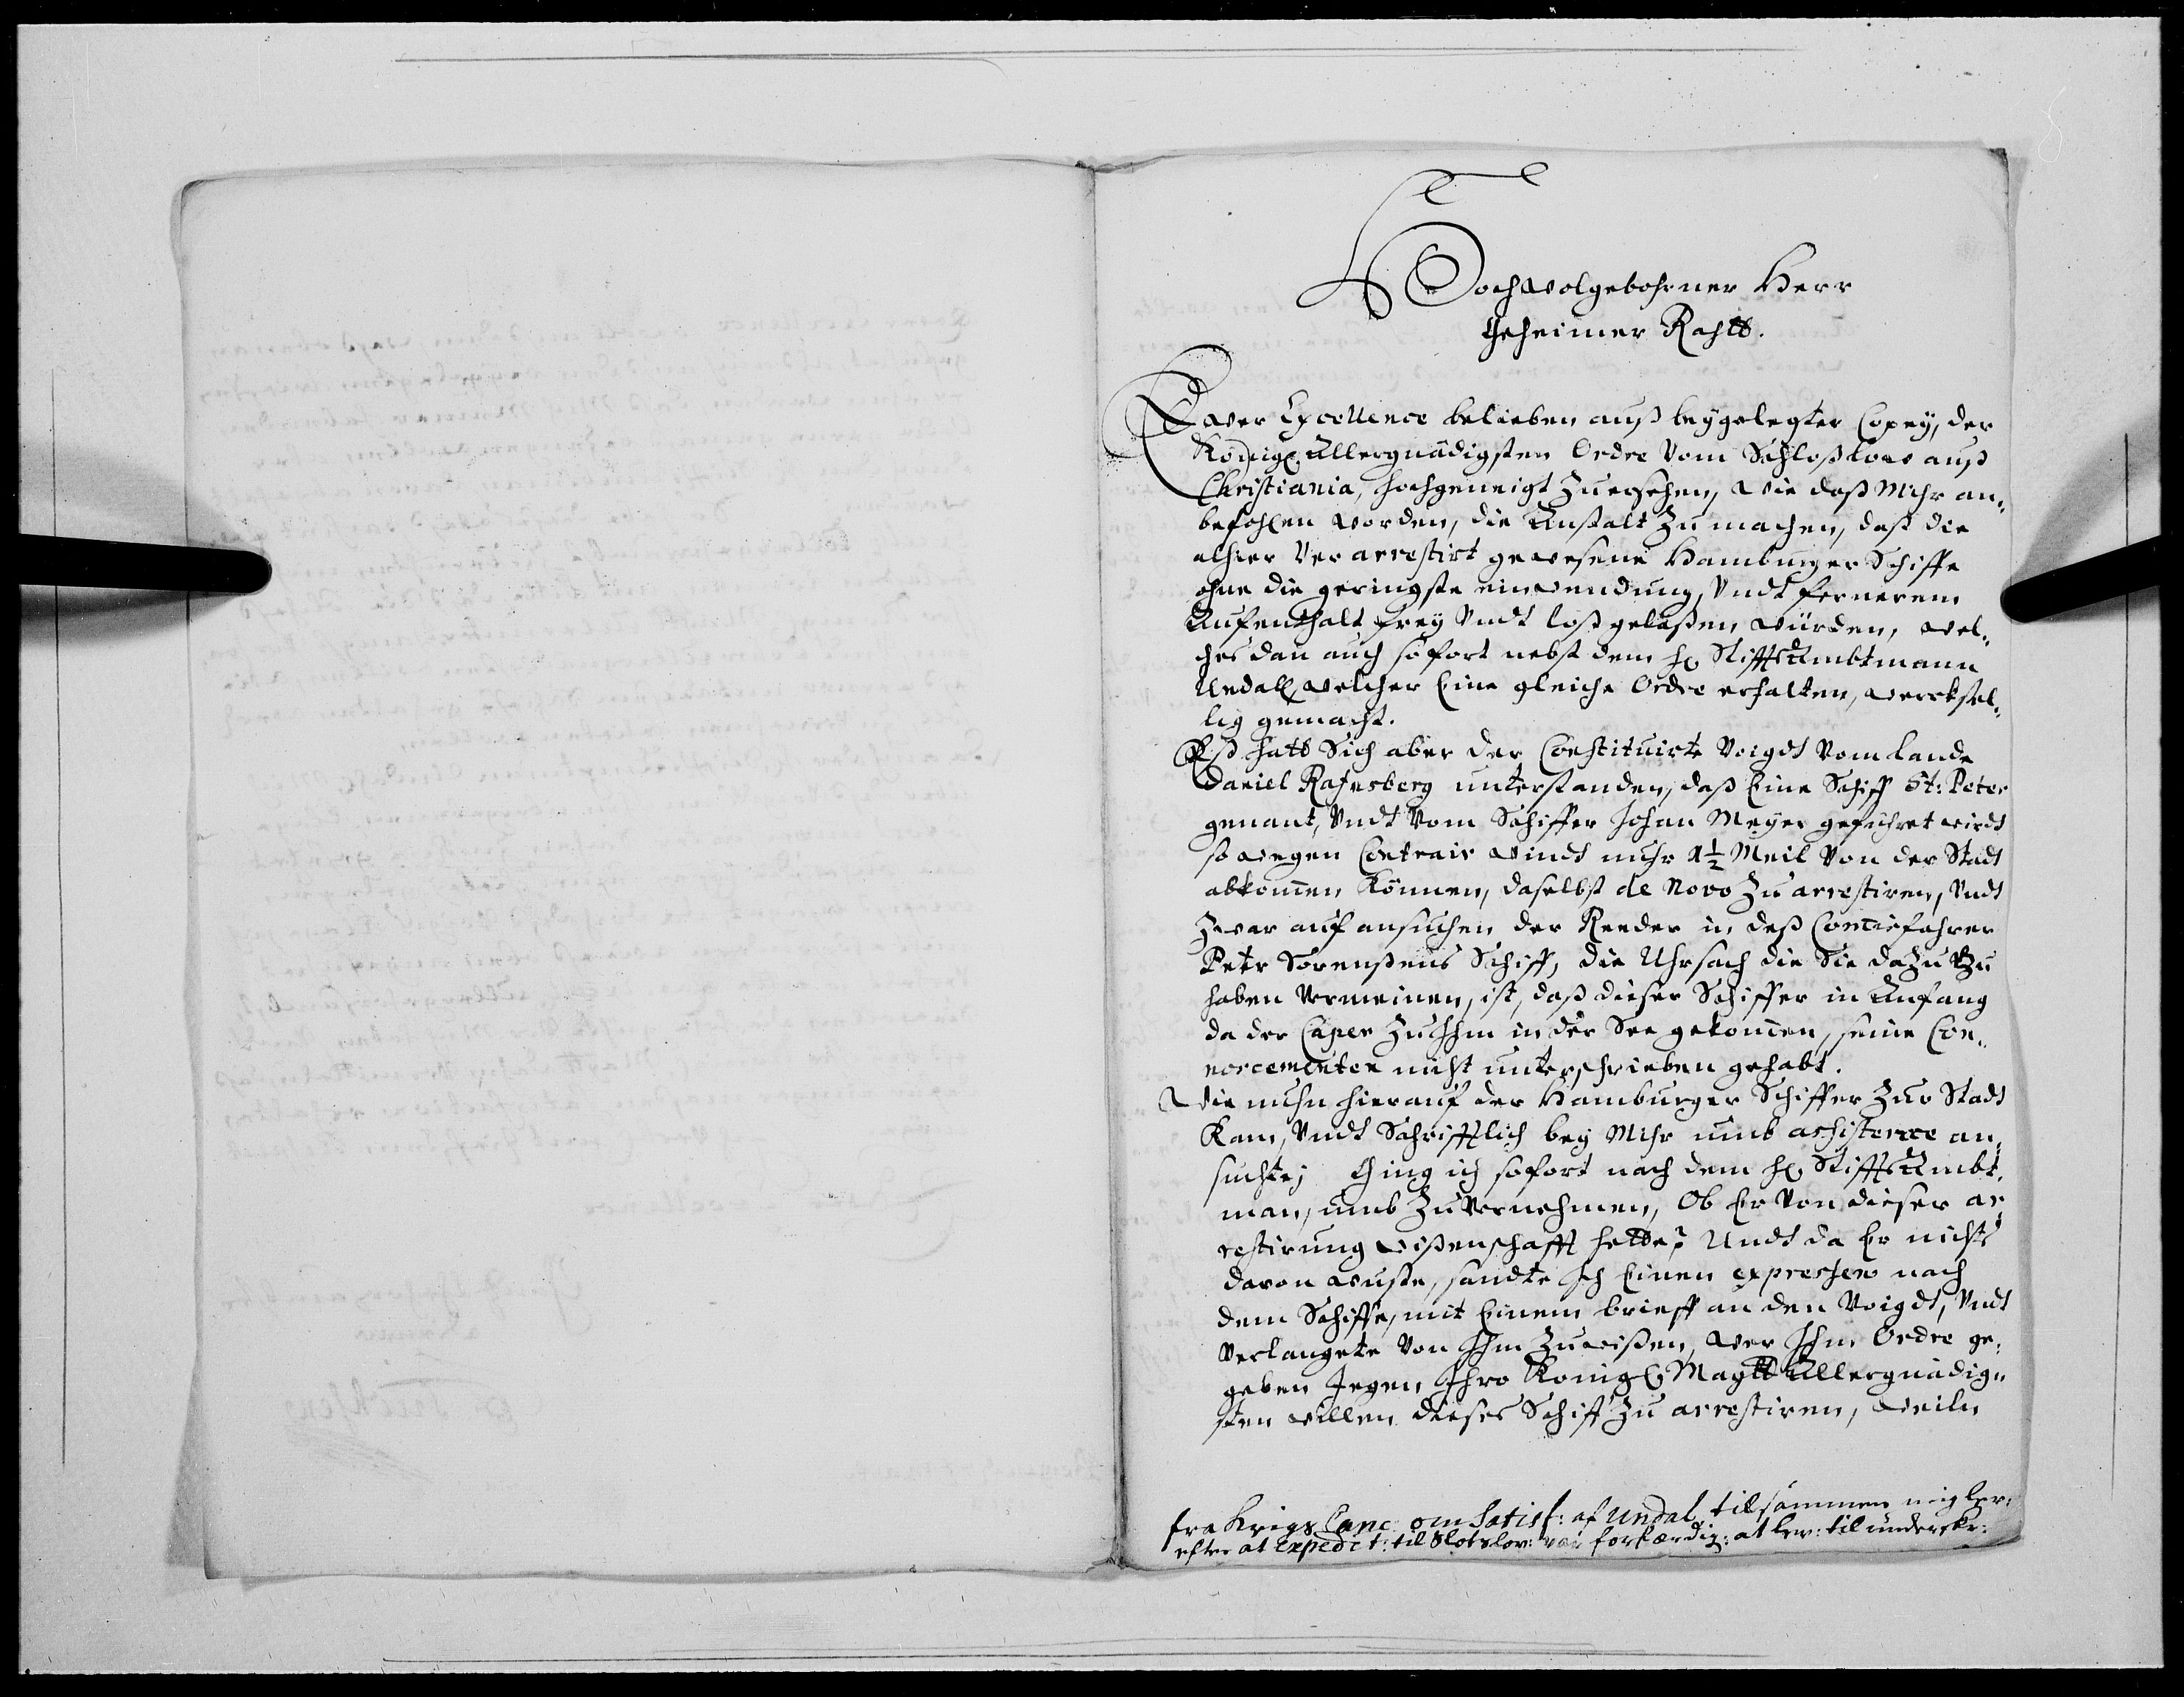 Hochwolgebohrner Herr
Geheimer Rahtt.
Ewer Excellence belieben auß beygelegter Copey, der
Königl. Allergnädigsten Ordre Vom Schloßlowe auß
Christiania, hochgeneigt zuersehen, Wie daß Mihr an„
befohlen worden, die Anstalt zu machen, daß die
alhier Ver arrestirt gewesene Hamburger Schiffe
ohne die geringste einwendung, Undt ferneren
Aufenthalt frey Undt loß gelaßen würden, wel„
ches dan auch sofort nebst dem H. StifftsAmbtmann
Undall, welcher Eine gleiche Ordre erhalten, wercksel„
lig gemacht.
Eß hatt Sich aber der Constituirte Voigdt Vom Lande
Daniel Rafnsberg unterstanden, daß Eine Schiff St: Peter
genant, Undt Vom Schiffer Johan Meyer geführet wirdt
so wegen Contrair windt nuhr 1½ Meil Von der Stadt
abkommen können, daselbst de Novo zu arrestiren, Undt
Zwar auf ansuchen der Reeder in deß
Petr Sörenßens Schiff, die Uhrsach die Sie dazu zu
haben Vermeinen, ist, daß dieser Schiffer in Anfang
da der Caper zu Ihm in der See gekommen, seine Con„
norcementen nicht unterschrieben gehabt.
Wie nuhn hierauf der Hamburger Schiffer Zur Stadt
Kam, Undt Schrifftlich bey Mihr umb assistence an„
suchte; Ging ich sofort nach dem H. StifftsAmbt„
man, umb zu Vernehmen, Ob Er Von dieser ar„
restirung wißenschafft hette? Undt da Er nichts
davon wuste, sandte Ich Einen expressen nach
dem Schiffe, mit Einem brieff an den Voigdt, Undt
Verlangete Von Ihm zuwißen, wer Ihm Ordre ge„
geben Jegen Ihro Königl. Maytt Allergnädig„
sten willen dieses Schiff zu arrestiren, weiln
fra Krigs Canc: om Satisf: af Undal, tilsammen mig lev:
efter at Expedit: til Slotslov: var forfærdig: at lev: til underskr: